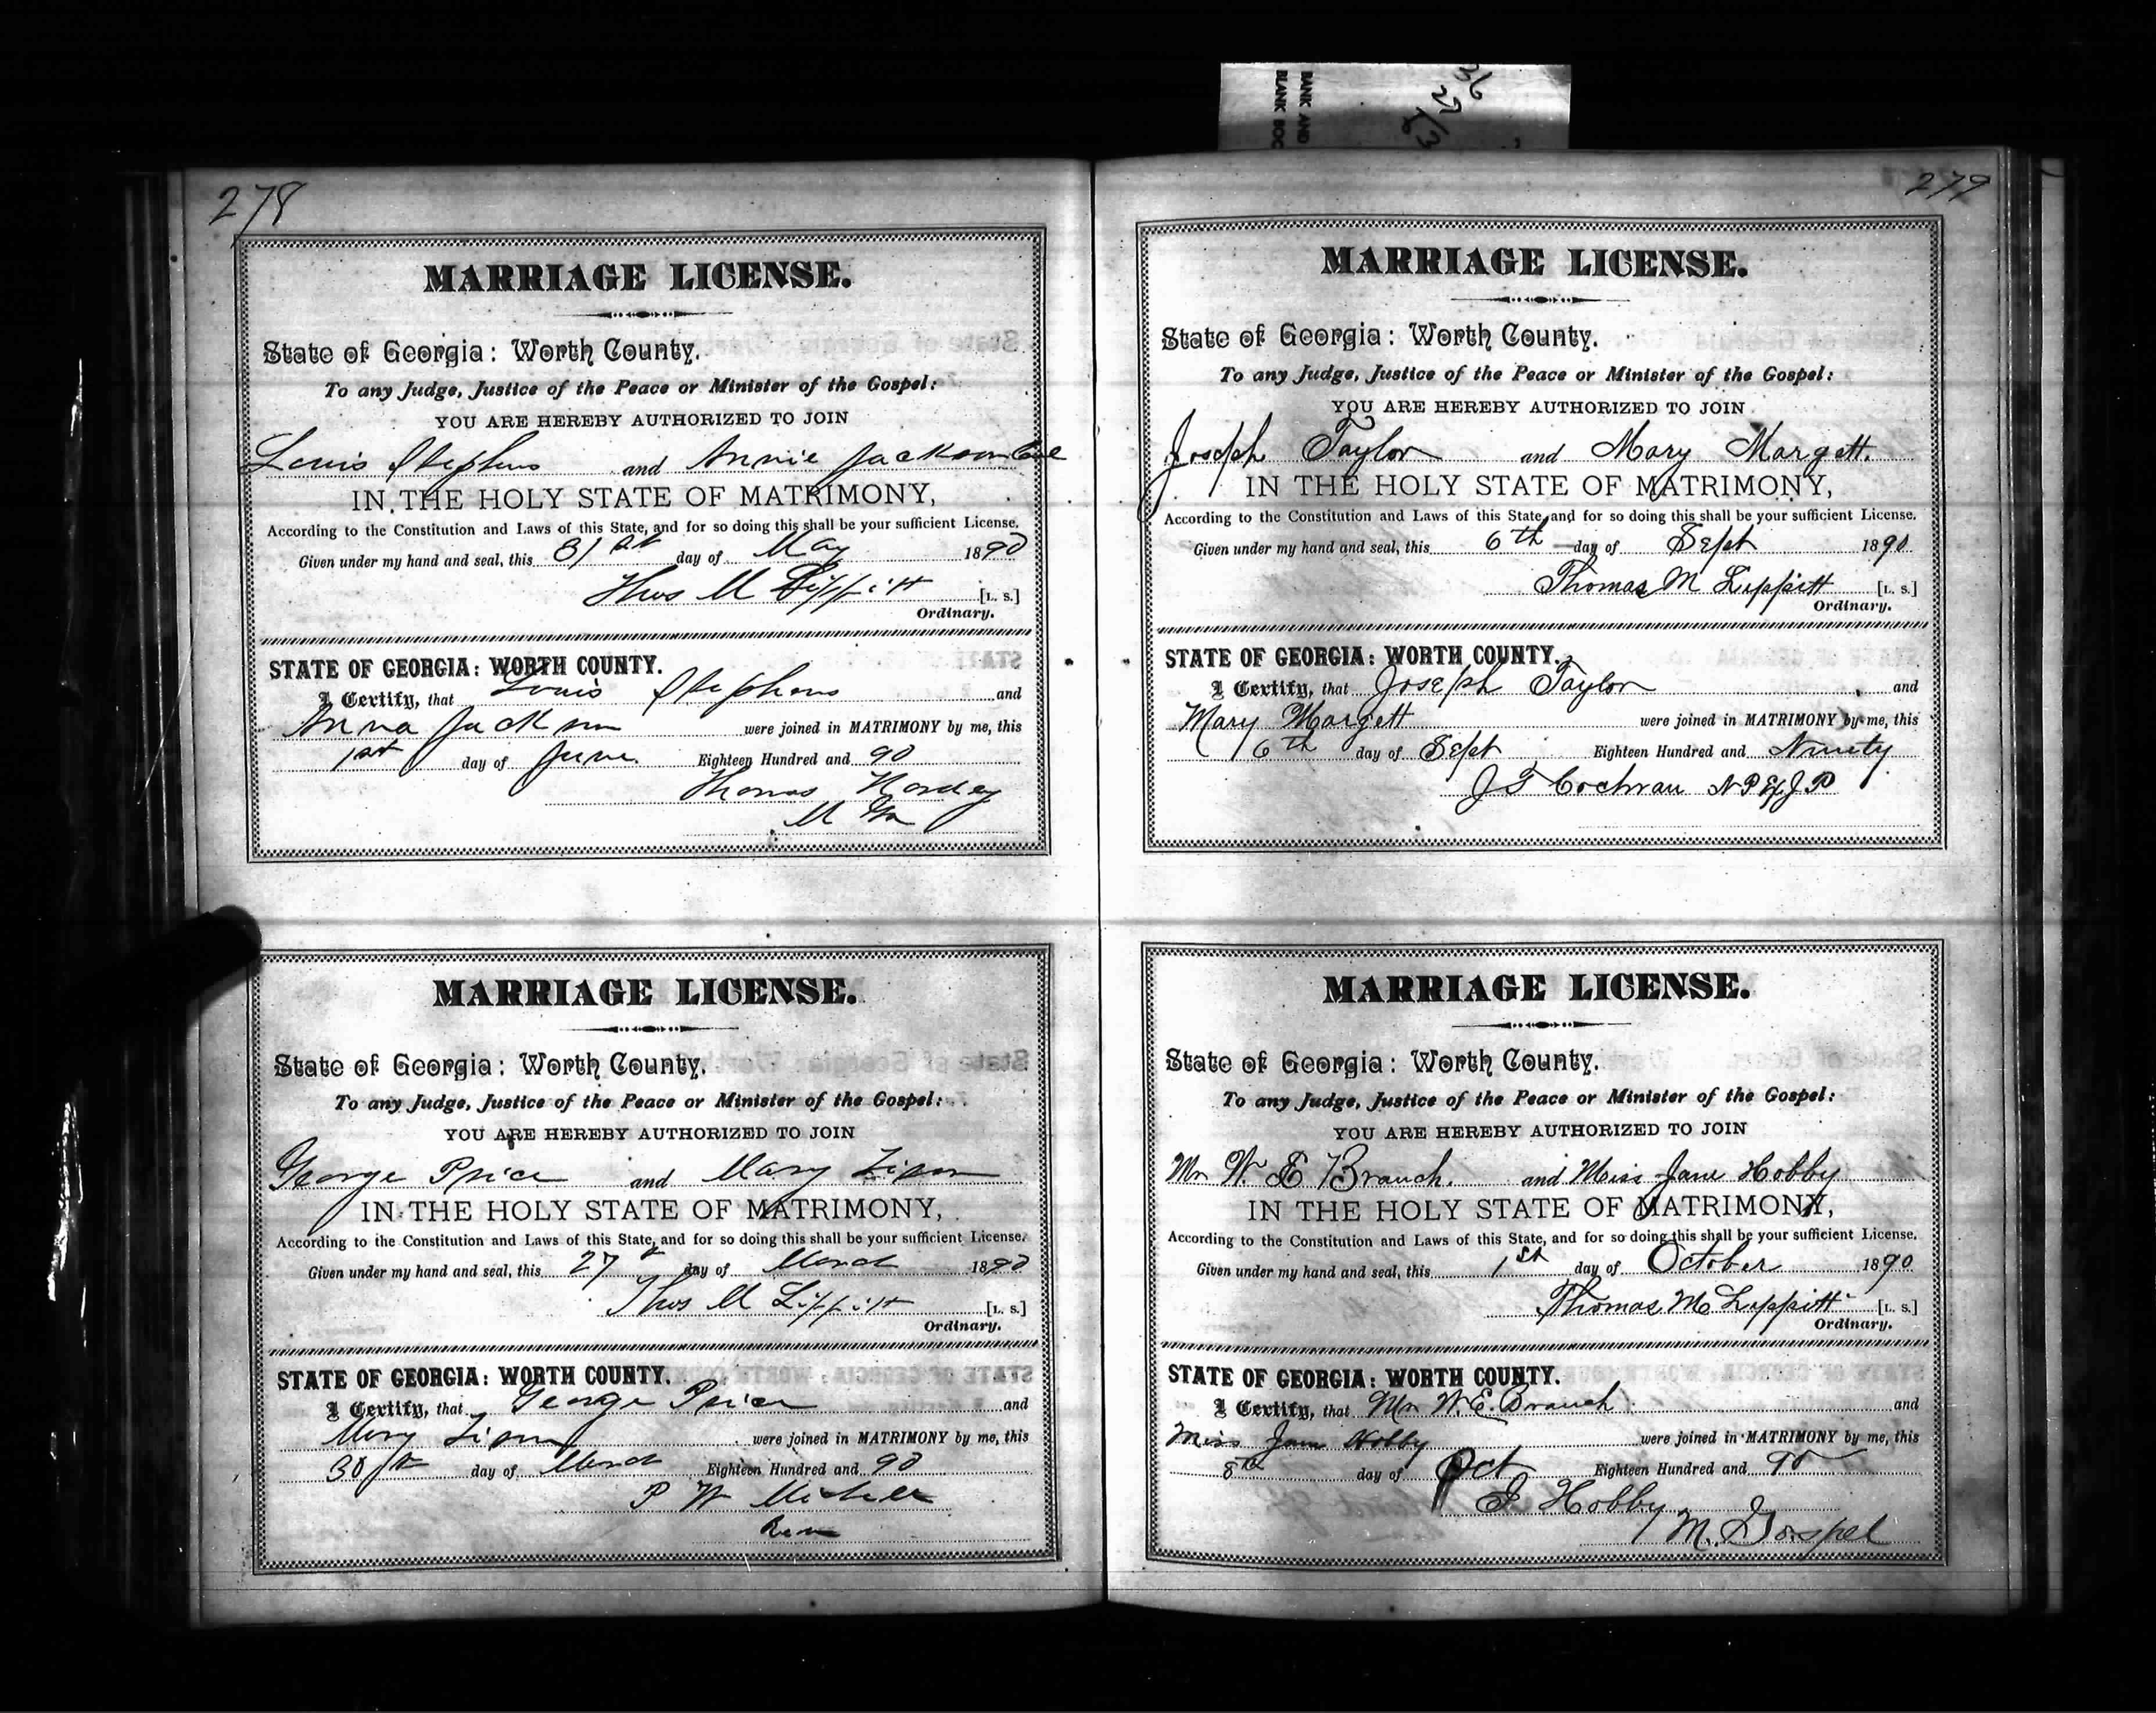 BANK AND
BLANK BOO
36
278
MARRIAGE LICENSE.
State of Georgia: Worth County.
To any Judge, Justice of the Peace or Minister of the Gospel:
YOU ARE HEREBY AUTHORIZED TO JOIN
Louis Stephens and Annie Jackson Col
IN THE HOLY STATE OF MATRIMONY,
According to the Constitution and Laws of this State, and for so doing this shall be your sufficient License.
Given under my hand and seal, this 31st day of May 1890
Thos M Lippitt [L. S.]
Ordinary.
STATE OF GEORGIA: WORTH COUNTY.
I Certify, that Louis Stephens and
Anna Jackson were joined in MATRIMONY by me, this
1st day of June Eighteen Hundred and 90
Thomas
M
MARRIAGE LICENSE.
State of Georgia: Worth County.
To any Judge, Justice of the Peace or Minister of the Gospel:
YOU ARE HEREBY AUTHORIZED TO JOIN
George Price and Mary
IN THE HOLY STATE OF MATRIMONY,
According to the Constitution and Laws of this State, and for so doing this shall be your sufficient License.
Given under my hand and seal, this 27 day of March 1890
Thos M Lippitt [L. S.]
Ordinary.
STATE OF GEORGIA: WORTH COUNTY.
I Certify, that George Price and
Mary were joined in MATRIMONY by me, this
30th day of March Eighteen Hundred and 90
P W
279
MARRIAGE LICENSE.
State of Georgia: Worth County.
To any Judge, Justice of the Peace or Minister of the Gospel:
YOU ARE HEREBY AUTHORIZED TO JOIN
Joseph Taylor and Mary Margett.
IN THE HOLY STATE OF MATRIMONY,
According to the Constitution and Laws of this State, and for so doing this shall be your sufficient License.
Given under my hand and seal, this 6th day of Sept 1890
Thomas M Lippitt [L. S.]
Ordinary.
STATE OF GEORGIA: WORTH COUNTY.
I Certify, that Joseph Taylor and
Mary Margett were joined in MATRIMONY by me, this
6th day of Sept Eighteen Hundred and Ninety
Cochran N P & J P
MARRIAGE LICENSE.
State of Georgia: Worth County.
To any Judge, Justice of the Peace or Minister of the Gospel:
YOU ARE HEREBY AUTHORIZED TO JOIN
Mr W. E Branch. and Miss Jane Hobby
IN THE HOLY STATE OF MATRIMONY,
According to the Constitution and Laws of this State, and for so doing this shall be your sufficient License.
Given under my hand and seal, this 1st day of October 1890
Thomas M Lippitt [L. S.]
Ordinary.
STATE OF GEORGIA: WORTH COUNTY.
I Certify, that Mr W. E. Branch and
Miss Jane Hobby were joined in MATRIMONY by me, this
8th day of Oct Eighteen Hundred and 90
Hobby
M. Gospel